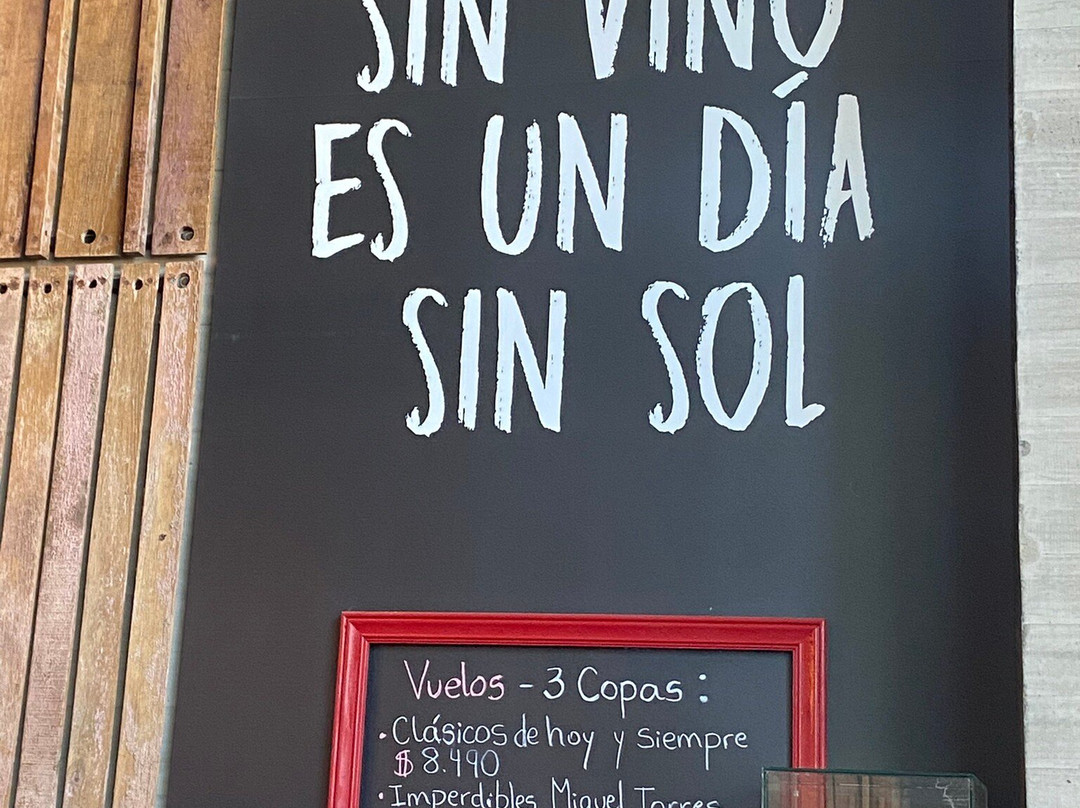 SIN VINO
ES UN DÍA
SIN SOL
Vuelos - 3 Copas :
• Clásicos de hoy y siempre
$ 8.490
• Imperdibles Miguel Torres